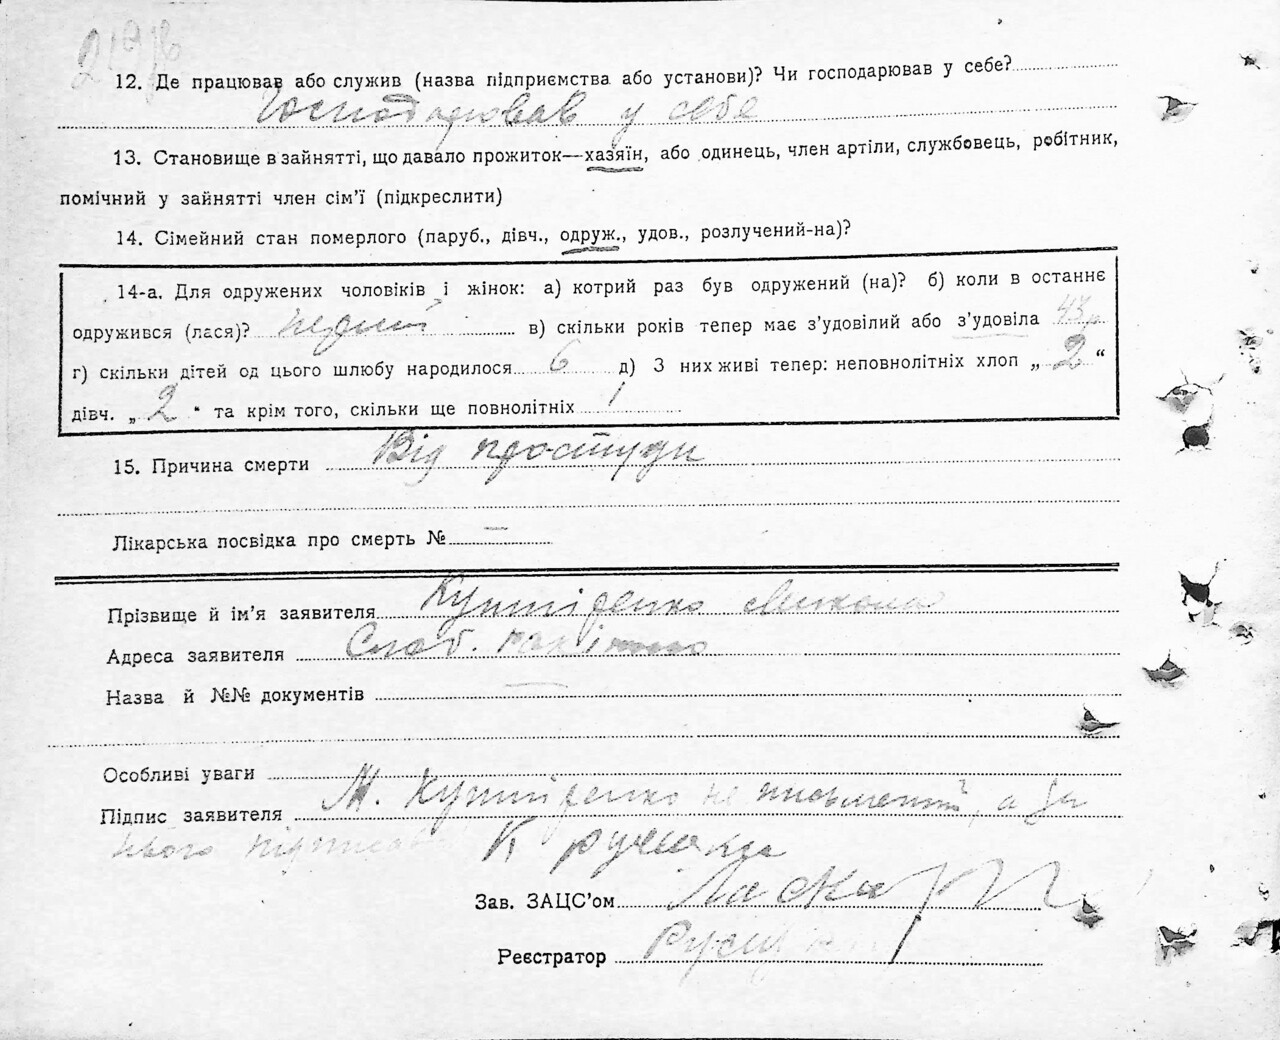 12. Де працював або служив (назва підприємства або установи)? Чи господарював у себе?
Господарював у себе
13. Становище в зайнятті, що давало прожиток—хазяїн, або одинець, член артіли, службовець, робітник,
помічний у зайнятті член сім'ї (підкреслити)
14. Сімейний стан померлого (паруб., дівч., одруж., удов., розлучений-на)?
14-а. Для одружених чоловіків і жінок: а) котрий раз був одружений (на)? б) коли в останнє
одружився (лася)? перший в) скільки років тепер має з'удовілий або з'удовіла 43 р
г) скільки дітей од цього шлюбу народилося 6 д) З них живі тепер: неповнолітніх хлоп „ 2 “
дівч. „ 2 “ та крім того, скільки ще повнолітніх 1
15. Причина смерти Від простуди
Лікарська посвідка про смерть № —
Прізвище й ім'я заявителя Кушніренко Микола
Адреса заявителя Слоб.
Назва й №№ документів —
Особливі уваги
Підпис заявителя М. Кушніренко не письменний, а за
нього підписав К
Зав. ЗАЦС'ом
Реєстратор